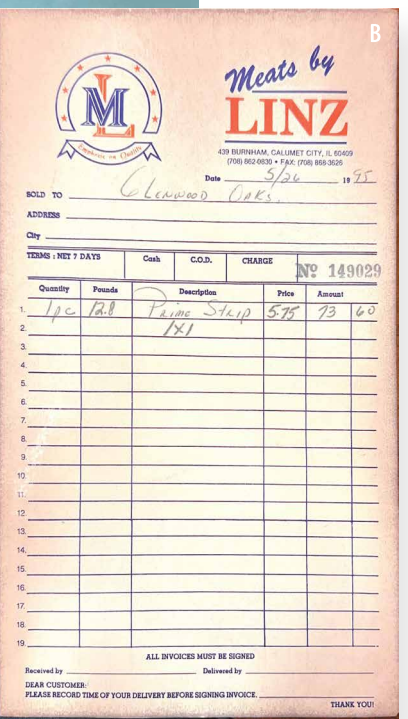 B
ML
Emphasis on Quality
Meats by
LINZ
439 BURNHAM, CALUMET CITY, IL 60409
(708) 862-0830 • FAX: (708) 868-3626
Date 5/26 1995
SOLD TO Glenwood Oaks
ADDRESS
City
TERMS : NET 7 DAYS Cash C.O.D. CHARGE
№ 149029
Quantity Pounds Description Price Amount
1. 1pc 12.8 Prime Strip 5.75 73 60
2. 1X1
3.
4.
5.
6.
7.
8.
9.
10.
11.
12.
13.
14.
15.
16.
17.
18.
19.
ALL INVOICES MUST BE SIGNED
Received by Delivered by
DEAR CUSTOMER:
PLEASE RECORD TIME OF YOUR DELIVERY BEFORE SIGNING INVOICE.
THANK YOU!